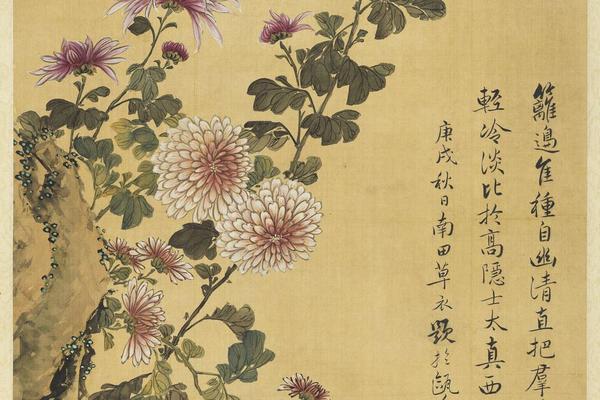 籬邊佳種自幽清直把羣
輕冷淡比於高隱士太真西
庚戌秋日南田草衣題於甌